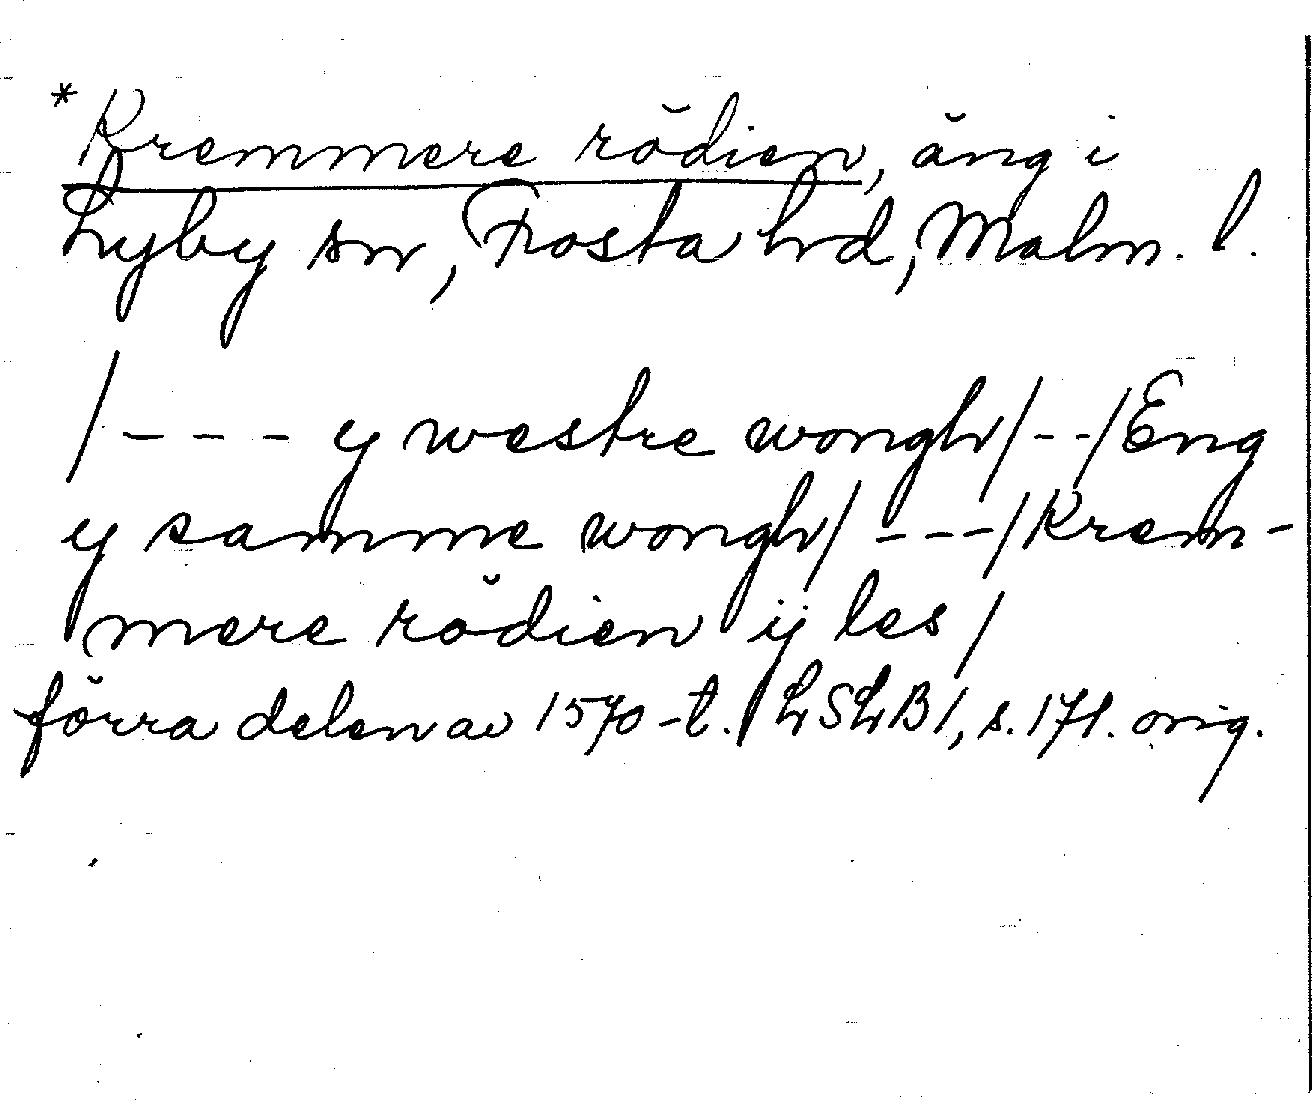 *Kremmere rödien, äng i
Lyby sn, Frosta hd, Malm. l.
/--- y westre wongh/--/Eng
y samme wongh/---/Krem-
mere rödien ij les/
förra delen av 1570-t. LSLB1, s.171. orig.